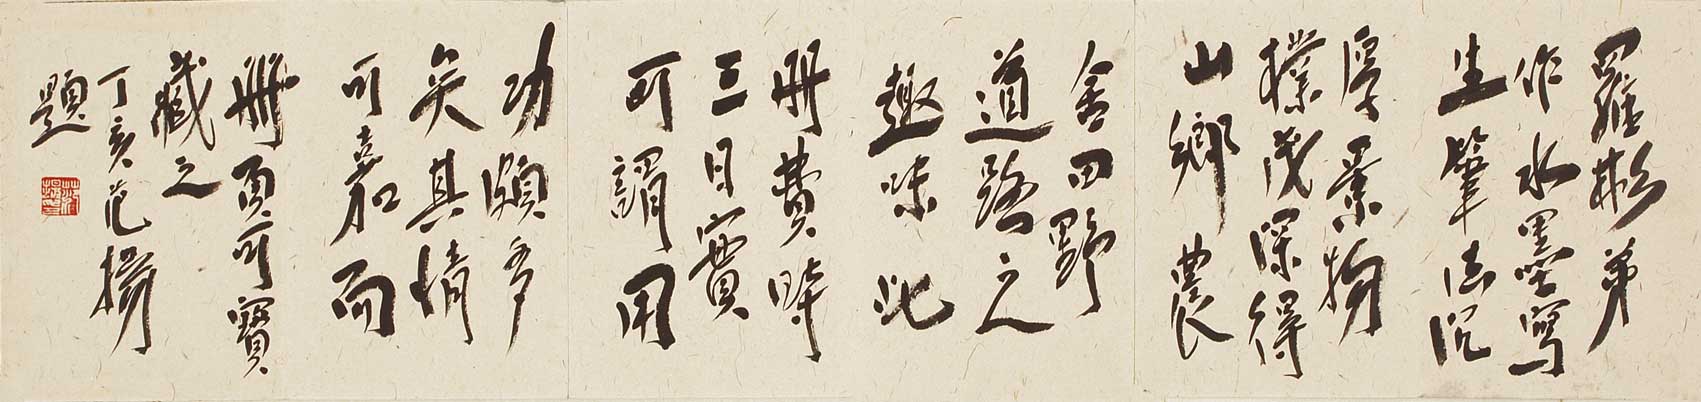 羅彬弟
作水墨寫
生筆法沉
厚景物
樸茂深得
山鄉農
舍田野
道路之
趣味此
冊費時
三日實
可謂用
功頗多
矣其情
可嘉而
冊頁可寶
藏之
丁亥范揚
題